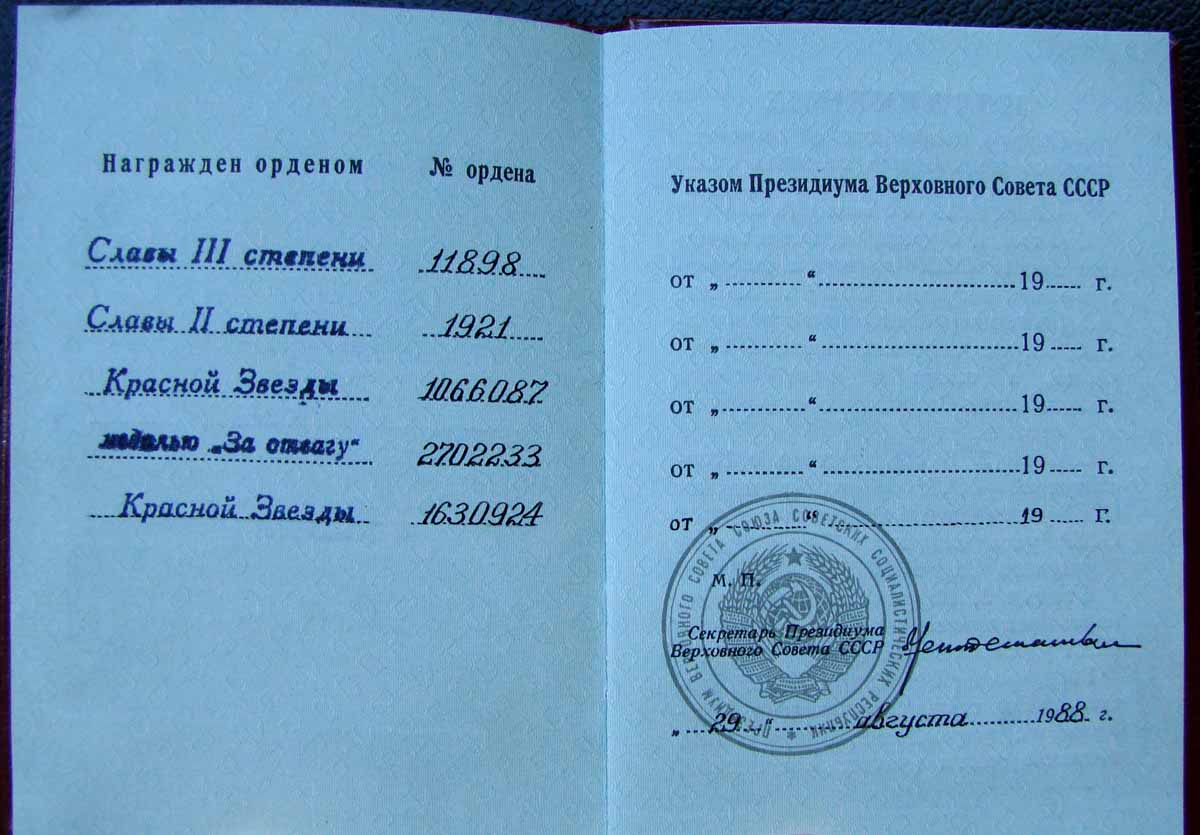 Награжден орденом № ордена
Славы III степени 11898
Славы II степени 1921
Красной Звезды 1066087
медалью „За отвагу“ 2702233
Красной Звезды 1630924
Указом Президиума Верховного Совета СССР
от „..........“..........19.....г.
от „..........“..........19.....г.
от „..........“..........19.....г.
от „..........“..........19.....г.
от „..........“..........19.....г.
М. П.
ПРЕЗИДИУМ ВЕРХОВНОГО СОВЕТА СОЮЗА СОВЕТСКИХ СОЦИАЛИСТИЧЕСКИХ РЕСПУБЛИК
Секретарь Президиума
Верховного Совета СССР
„29“ августа 1988 г.